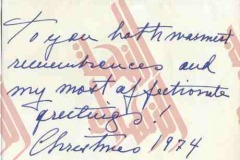 To you both warmest
remembrances and
my most affectionate
greetings!
Christmas 1974